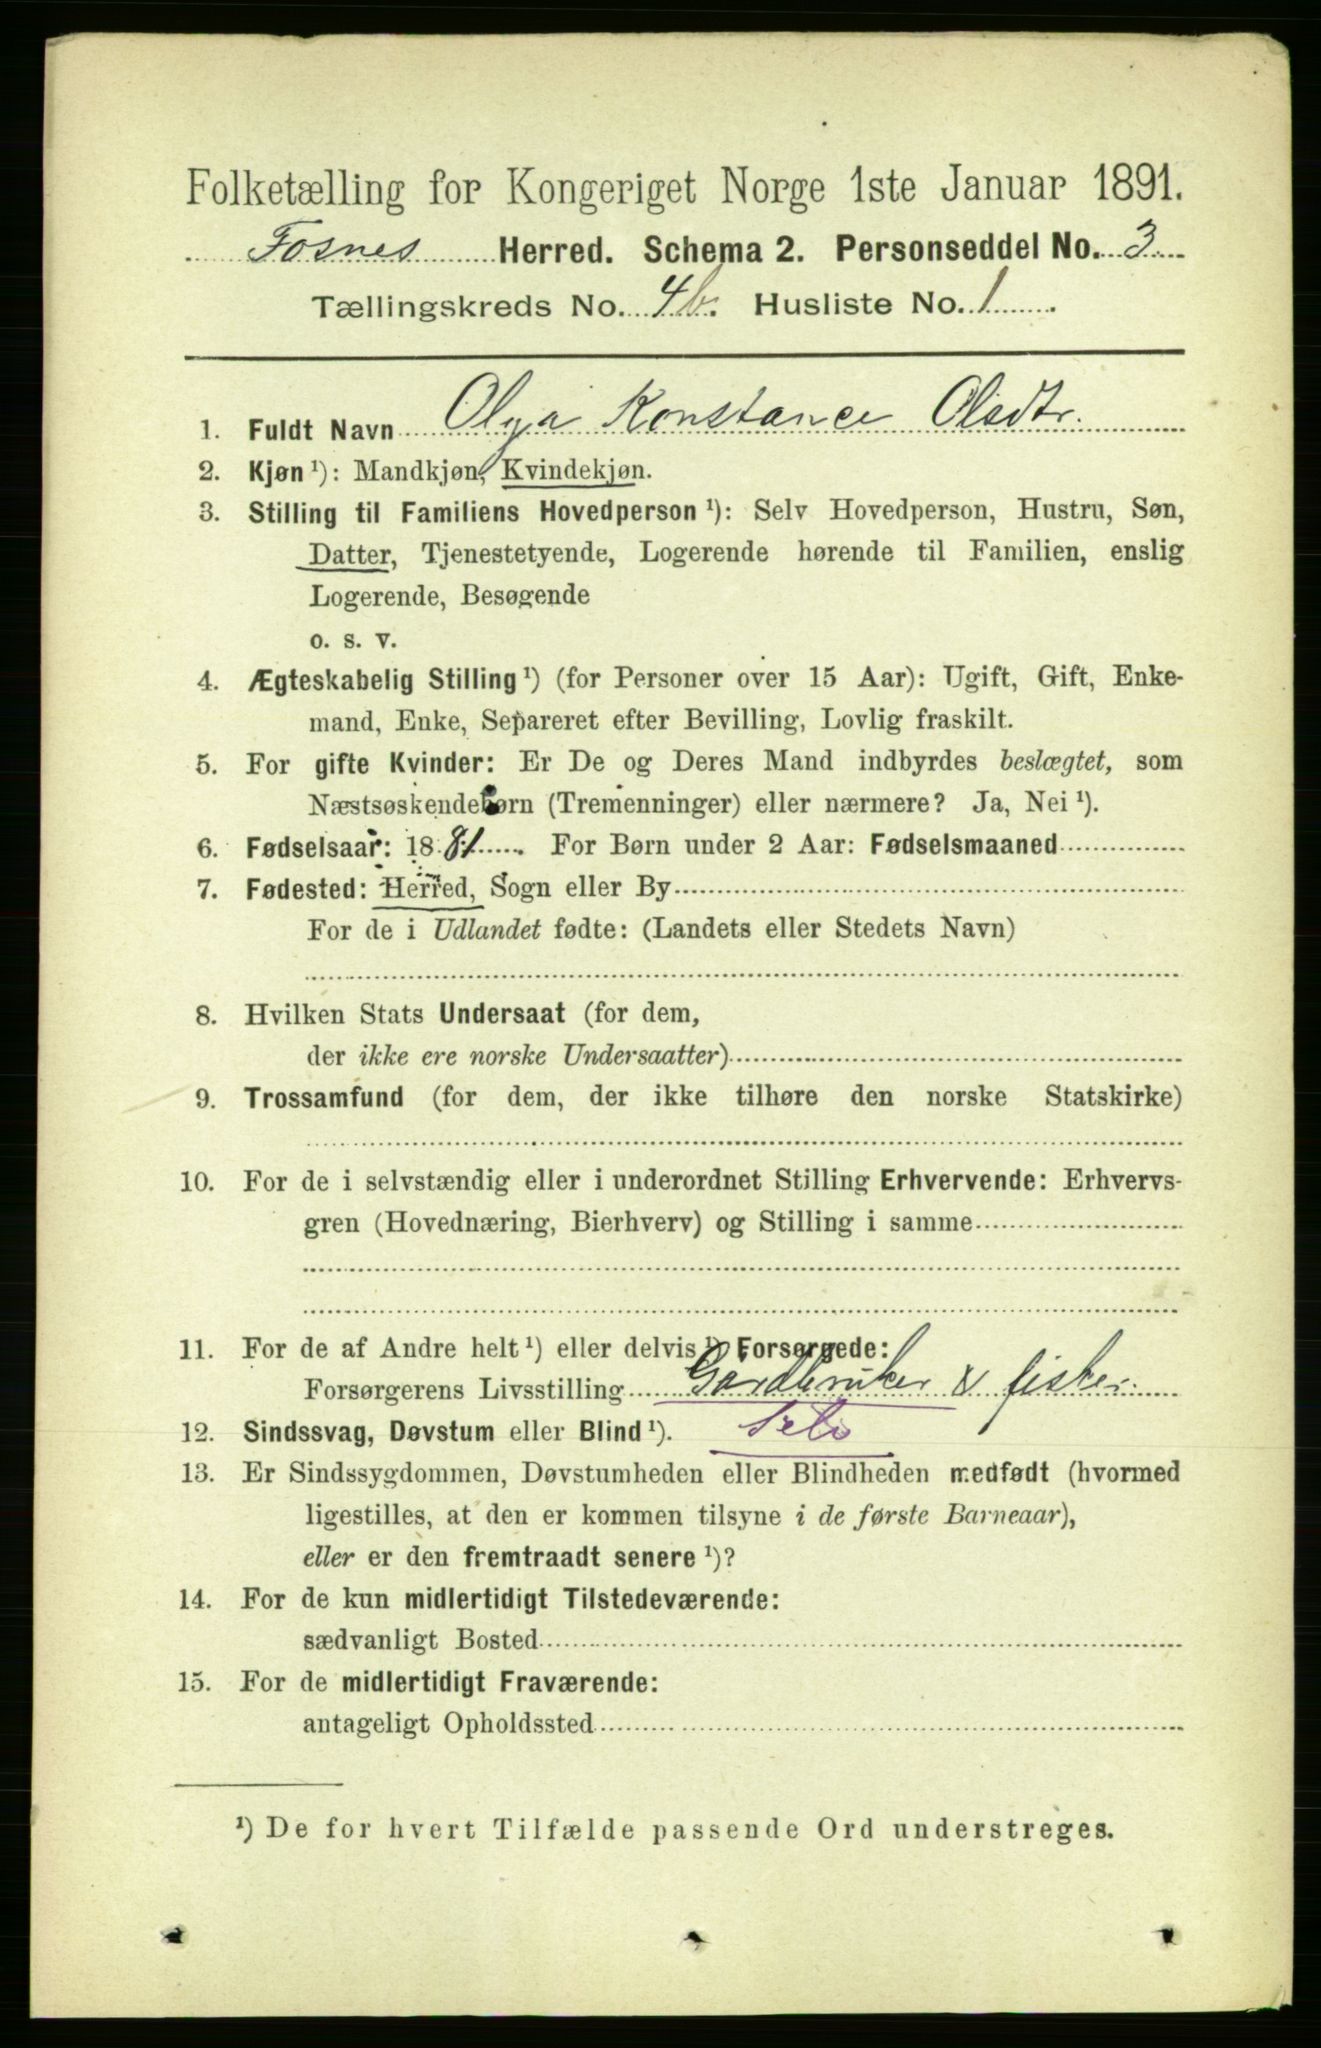 Folketælling for Kongeriget Norge 1ste Januar 1891.
Fosnes Herred. Schema 2. Personseddel No. 3
Tællingskreds No. 4b. Husliste No. 1.
1. Fuldt Navn Olga Konstance Olsdtr.
2. Kjøn ¹): Mandkjøn, Kvindekjøn.
3. Stilling til Familiens Hovedperson ¹): Selv Hovedperson, Hustru, Søn,
Datter, Tjenestetyende, Logerende hørende til Familien, enslig
Logerende, Besøgende
o. s. v.
4. Ægteskabelig Stilling ¹) (for Personer over 15 Aar): Ugift, Gift, Enke-
mand, Enke, Separeret efter Bevilling, Lovlig fraskilt.
5. For gifte Kvinder: Er De og Deres Mand indbyrdes beslægtet, som
Næstsøskendebørn (Tremenninger) eller nærmere? Ja, Nei ¹).
6. Fødselsaar: 1881. For Børn under 2 Aar: Fødselsmaaned
7. Fødested: Herred, Sogn eller By
For de i Udlandet fødte: (Landets eller Stedets Navn)
8. Hvilken Stats Undersaat (for dem,
der ikke ere norske Undersaatter)
9. Trossamfund (for dem, der ikke tilhøre den norske Statskirke)
10. For de i selvstændig eller i underordnet Stilling Erhvervende: Erhvervs-
gren (Hovednæring, Bierhverv) og Stilling i samme
11. For de af Andre helt ¹) eller delvis ¹) Forsørgede:
Forsørgerens Livsstilling Gårdbruker & fisker.
12. Sindssvag, Døvstum eller Blind ¹). Selv
13. Er Sindssygdommen, Døvstumheden eller Blindheden medfødt (hvormed
ligestilles, at den er kommen tilsyne i de første Barneaar),
eller er den fremtraadt senere ¹)?
14. For de kun midlertidigt Tilstedeværende:
sædvanligt Bosted
15. For de midlertidigt Fraværende:
antageligt Opholdssted
¹) De for hvert Tilfælde passende Ord understreges.